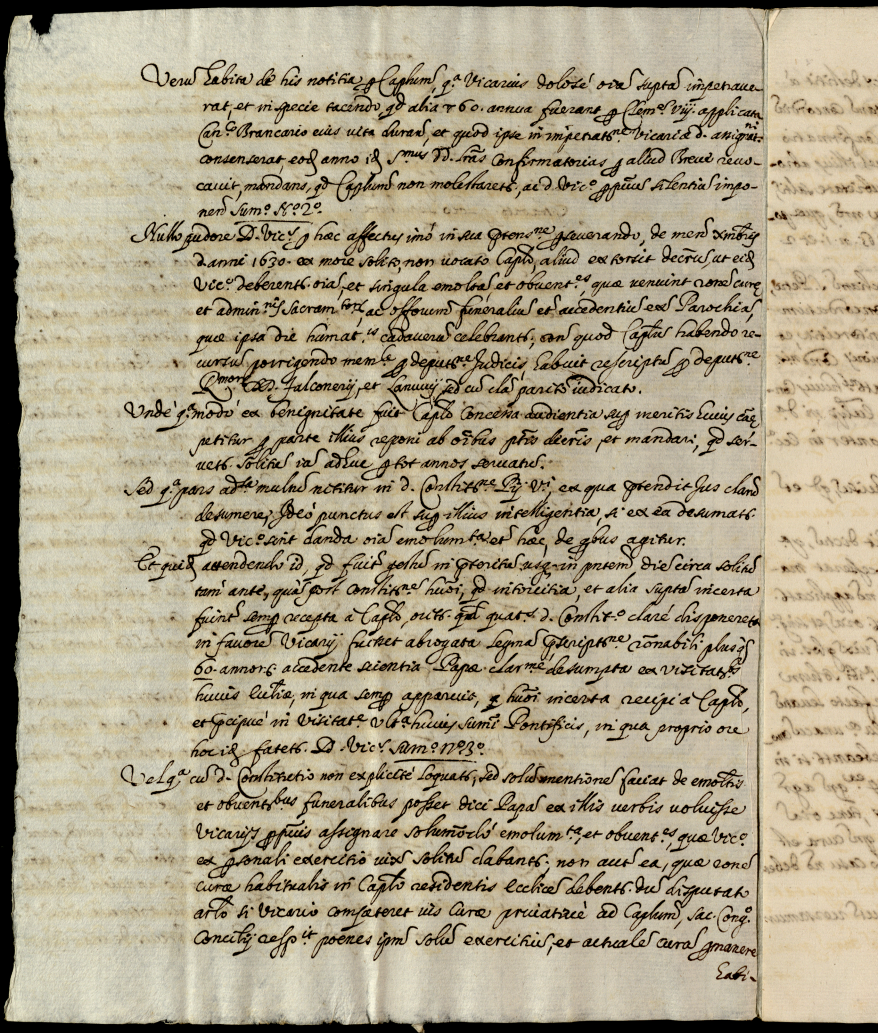 Verũ habita de his notitia ꝑ Caplũm, qª Vicarius dolosé oia supta impetrave-
rat, et in specie tacendo, qd alia 60. annua fuerant ꝑ Clemẽ Vij. applicata
Canᶜᵒ Brancario eius vita durañ, et quod ipse in impetratⁿᵉ Vicariæ d. assignatⁿⁱ
consenserat, eod anno id Sᵐᵘˢ DD. lras Confirmatorias ꝑ aliud Breve revo-
cavit, mandans, qd Caplũm non molestaret, ac d. Vicº ꝑpetuũ silentiũ impo-
nen̄ Sumº Nº 2º.
Nullo pudore D. Vicˢ ꝑ hæc affectus imò in sua ptensⁿᵉ ꝑseverando, de men̄ Xmbris
d. anni 1630. ex more solito, non vocato Caplo, aliud extorsit decrm, ut eid
Vicº deberent oia, et singula emolta et obventᵉˢ quæ veniunt rone curæ
et adminⁿⁱˢ Sacramᵗᵒʳ, ac officorum funeraliũ et accedentiũ ex Parochia,
quæ ipsa die humatⁱˢ cadaverũ celebrant, con quod Caplũ habendo re-
cursũ porrigendo memˡᵉ ꝑ deputⁿᵉ Judicis habuit rescriptũ ꝑ deputⁿᵉ
RR.ᵐᵒʳ DD. Falconerij, et Lanuvij sed cũ cla parito iudicato.
Undé qmodo ex benignitate fuit Caplo Concessa audientia sup meritis huius cãe
petitur ꝑ parte illius reponi ab oibus ptis decris, et mandari, qd ser-
vet solitũ iã adhuc ꝑ tot annos servatũ.
Sed qª pars adᵗᵃ multũ nititur in d. Constitⁿᵉ Pij Vⁱ, ex qua ptendit Jus clarũ
desumere, Ideo punctus est sup illius intelligentia, si ex ea desumat
qd Vicº sint danda oia emolumᵗᵃ et hæc, de qbus agitur.
Et quid attendendo id, qd fuit gestũ in pteritũ usq in pntem diẽ circa solitũ
tam ante, quã post constitⁿᵉ huõi, qd introitia, et alia supta incerta
fuint semp recepta a Caplo, d. Constitº claré disponeret
in favorẽ Vicarij fuisset abrogata legma pscriptⁿᵉ rõnabili plusqᵐ
60. annorˢ accedente scientia Papæ clarⁿᵉ desumpta ex visitatⁿᵉ
huius Eccliæ, in qua semp apparuit, huõi incerta recipi à Caplo,
et pcipué in visitatᵉ ultª huius Sumi Pontificis, in qua proprio ore
hoc id fatet D. Vicˢ Sumº Nº 3º.
Vel qª cũ d. Constitutio non explicité loquat, sed solũ mentionẽ faciat de emoltis
et obventibus funeralibus posset dici Papã ex illis verbis voluisse
Vicarijs ꝑpetuis assignare solumodo emolumᵗᵃ, et obventᵉˢ, quæ Vicº
ex ꝑsonali exercitio vixẽ solitũ dabant, non aut ea, quæ rone
curæ habitualis in Caplo residentis Eccliæ debent dũ disputat
an Vicario competeret ius Curæ privativé ad Caplũm, Sac. Congº
Concilij respᵈⁱᵗ poenes ipm solũ exercitiũ, et actualẽ curã ꝑmanere
habi-